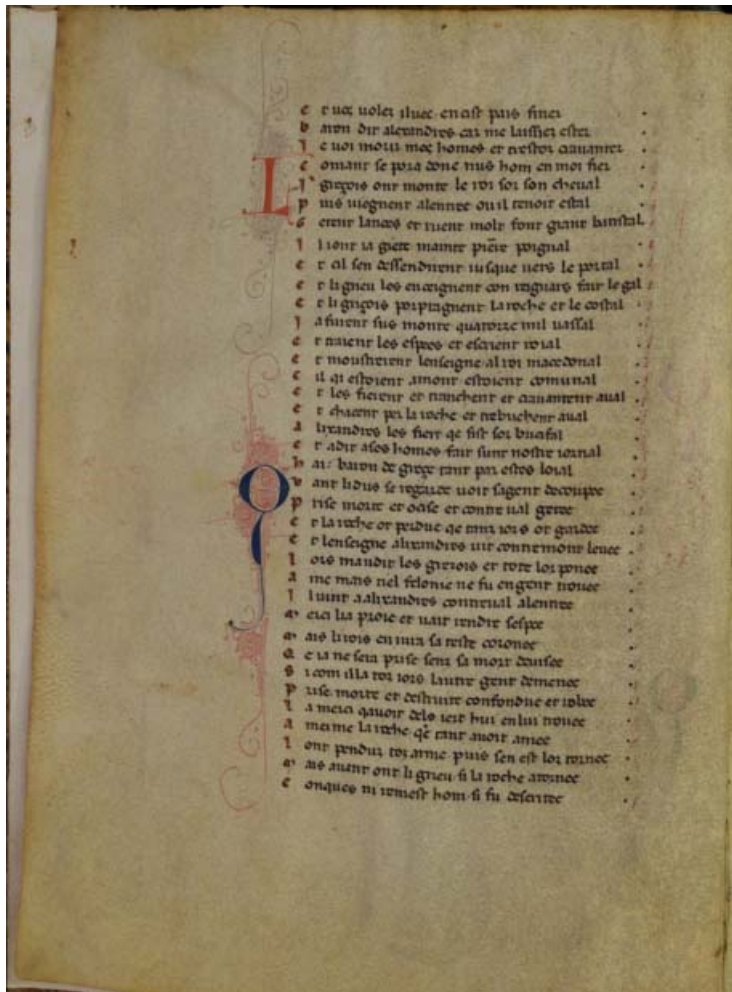 e t uec uoler iluec en cist pais finer
b aron dit alexandres car me laissier ester
I e uoi morir mes homes et trestor crauanter
c omant se pora donc nus hom en moi fier
L I grecois ont monte le roi sor son cheual
p uis uiegnent alentree ou il tenoit estal
G etent lances et ruent molt font grant batistal
I l i ont ia giete mainte piere poignal
e t cil sen deffendirent iusque uers le portal
e t li grieu les enceignent con fait le gal
e t li griçois porpragnent la roche et le costal
I a furent sus monte quatorze mil uassal
e t traient les espees et escrient roial
e t moustrerent lenseigne al roi macedonal
c il qi estoient amont estoient comunal
e t les fierent et trenchent et crauantent aual
e t chacent per la roche et trebuchent aual
a lixandres les fiert qe sist sor bucifal
e t a dit a ses homes fait sunt nostre iornal
h ai baron de grece tant par estes loial
Q uant li dus se regarde uoit sa gent decoupee
p rise morte et ocise et contre ual getee
e t la roche or perdue qe tanz iors ot gardee
e t lenseigne alixandres uit contremont leuee
l ors maudit les grezois et tote lor ponee
a me mais tiel felonie ne fu en gent trouee
I l uint a alixandres contreual alentree
m erci li a proie et uait rendre sespee
m ais li rois en iura sa teste coronee
Q e ia ne sera prise senz sa mort deuisee
S i com il la toz iors lautre gent demenee
p rise morte et destruite confondue et robee
I a merci qauoit dels iert hui en lui trouee
a meime la roche qe tant auoit amee
l ont pendut tot arme puis sen est lor tornee
m ais auant ont li grieu si la roche atornee
c onques ni remest hom si fu desertee